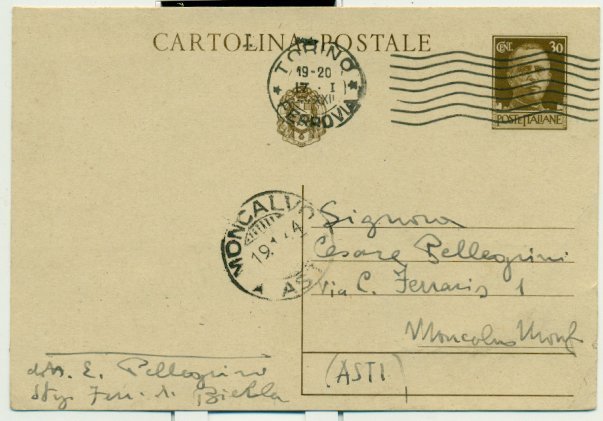 CARTOLINA POSTALE
CENT. 30
POSTE ITALIANE
TORINO
19-20
17 · I
XXII
FERROVIA
MONCALVO
19.1.44
ASTI
Signora
Cesare Pellegrini
Via C. Ferraris 1
Moncalvo Monf
(ASTI)
E. Pellegrini
Biella